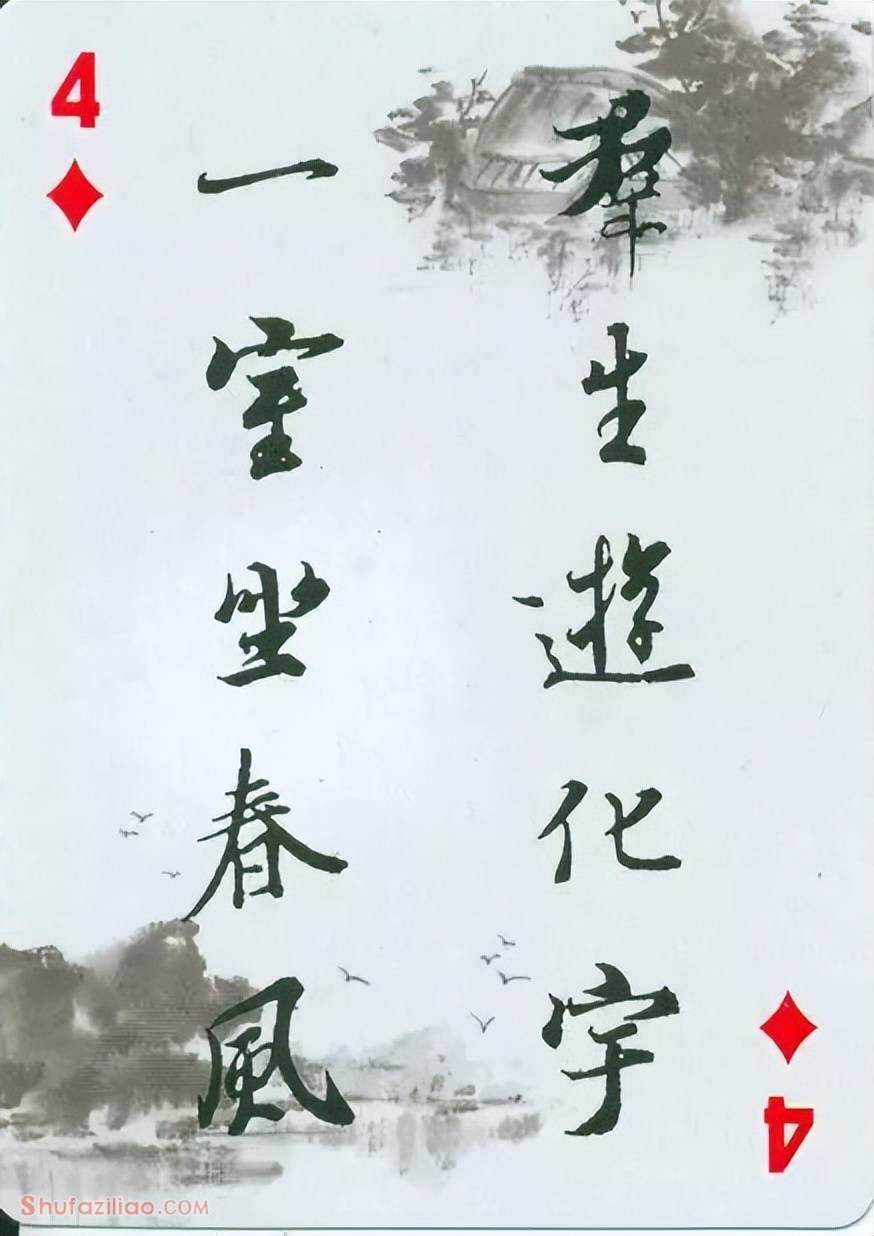 4
羣生遊化宇
一室坐春風
4
Shufaziliao.com